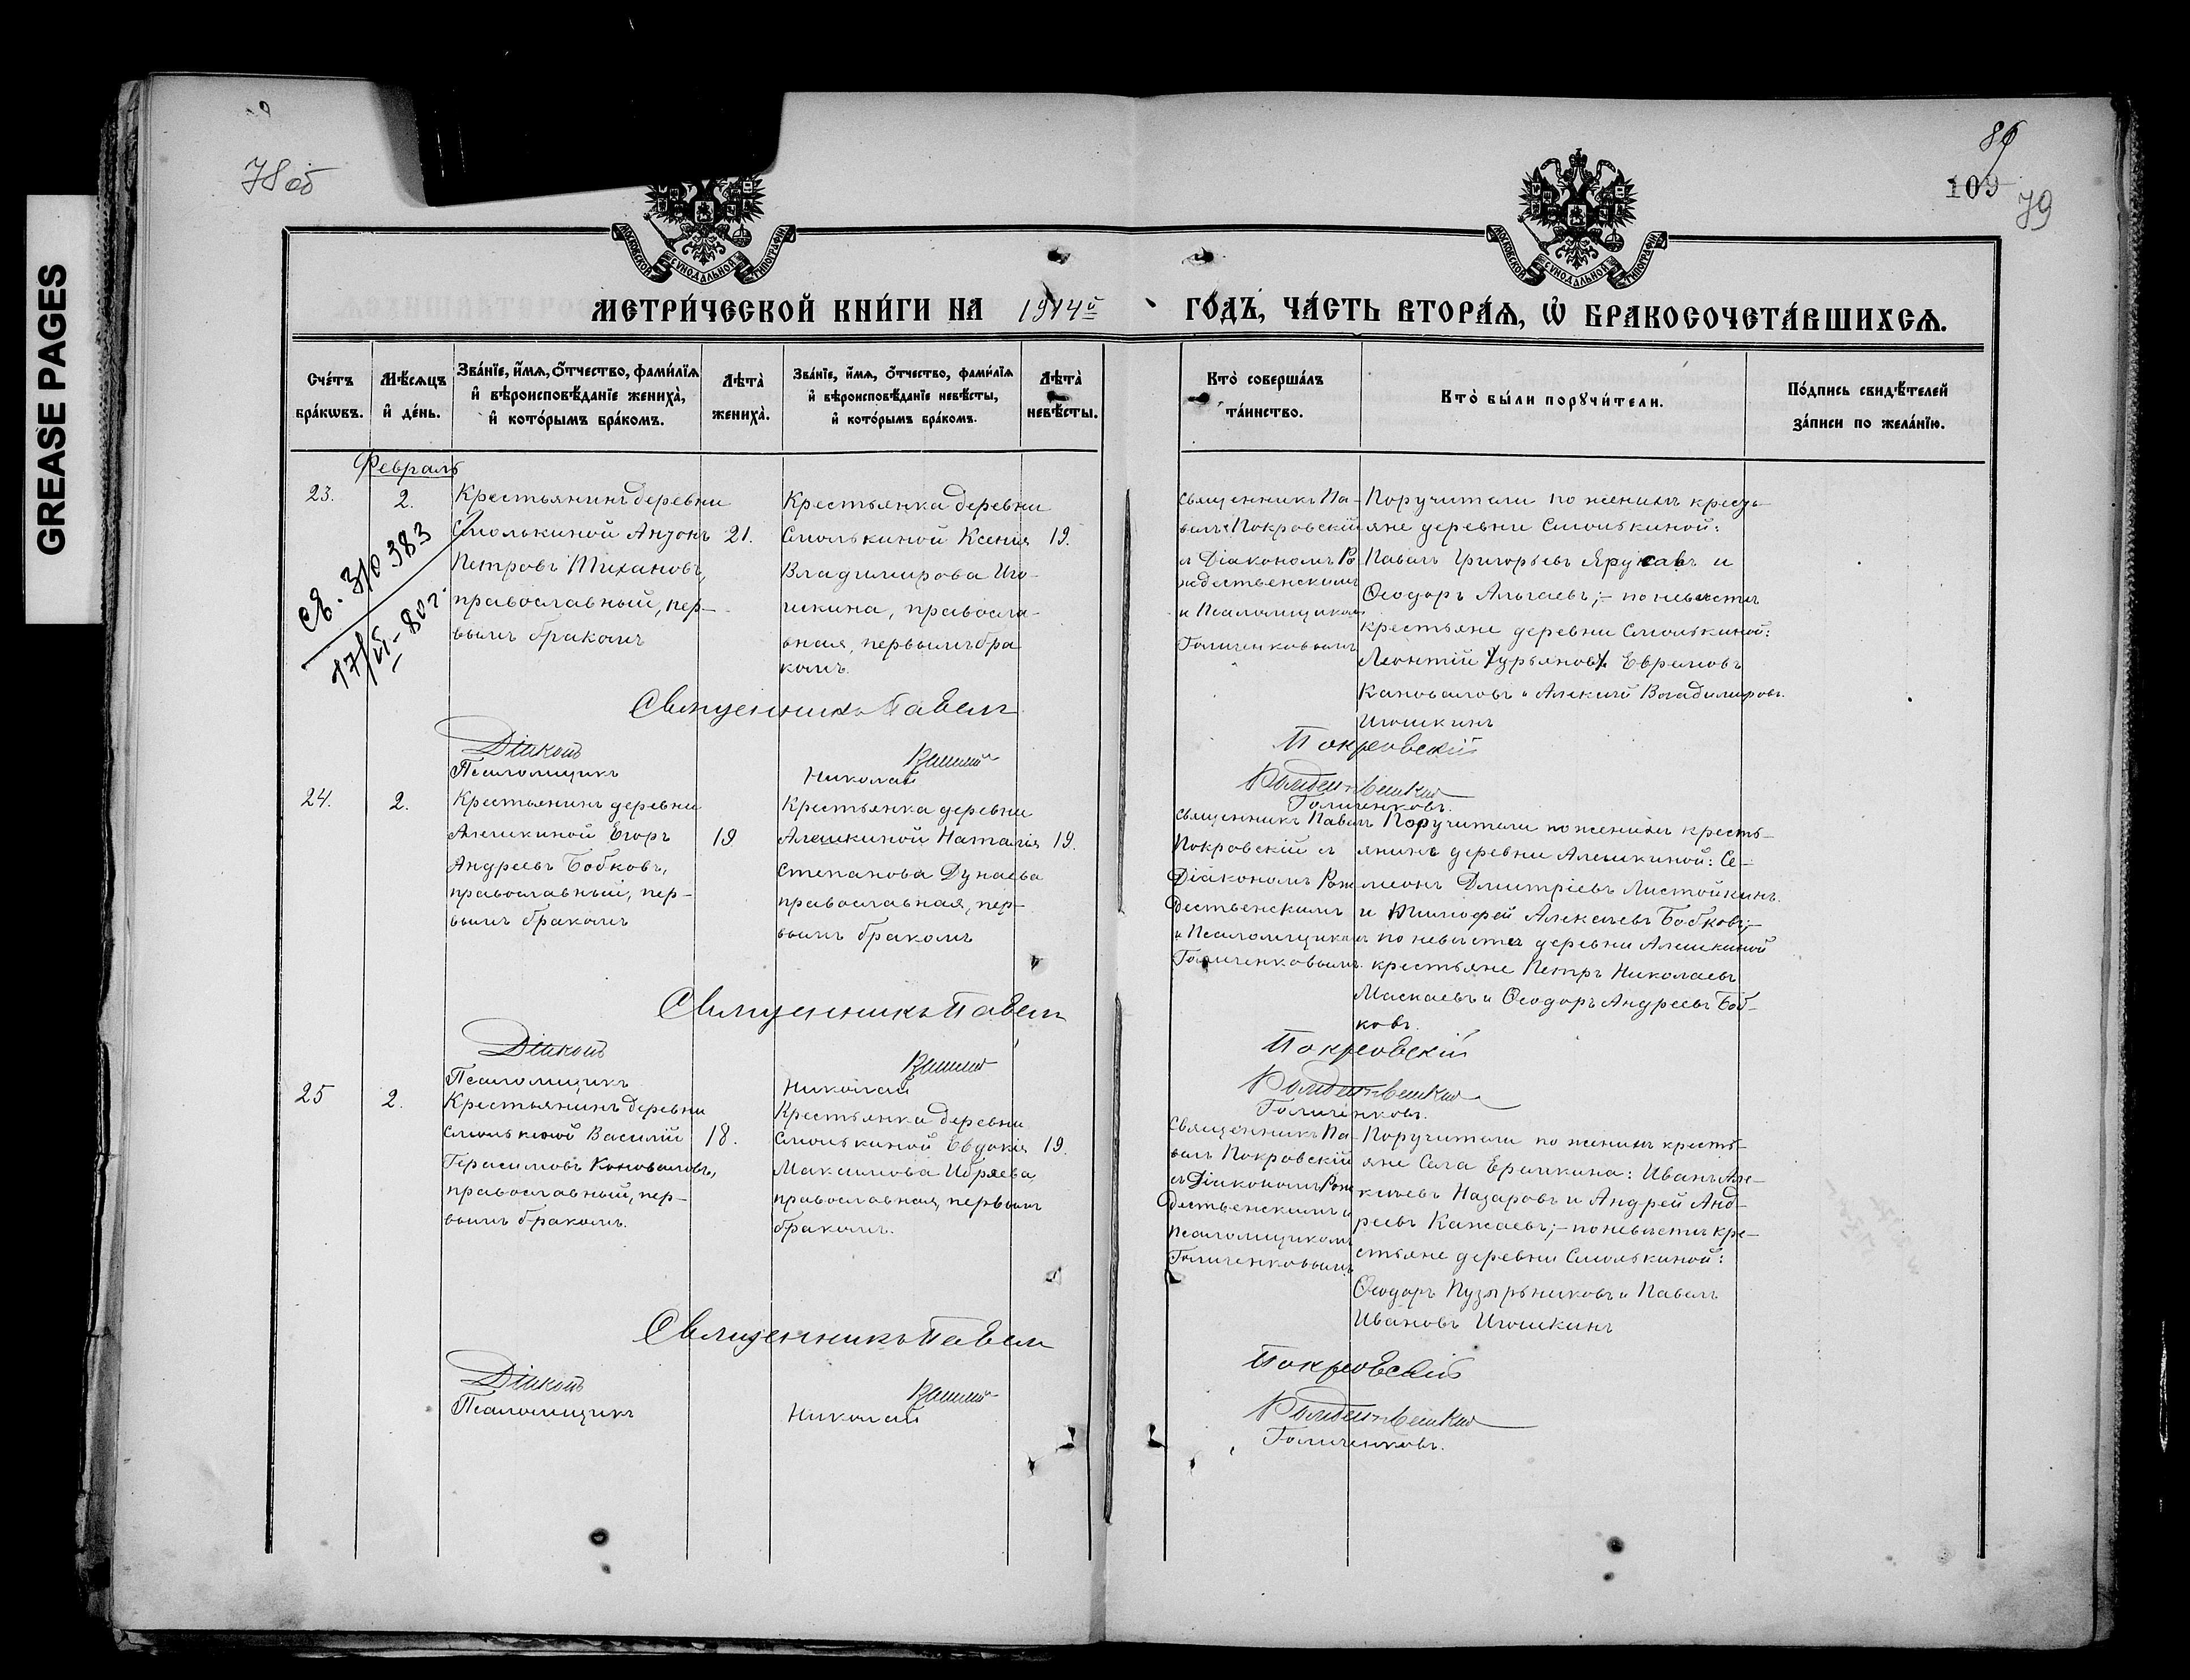 GREASE PAGES
78 об
86
109
79
МОСКОВСКОЙ СѴНОДАЛЬНОЙ ТИПОГРАФІИ
МОСКОВСКОЙ СѴНОДАЛЬНОЙ ТИПОГРАФІИ
МЕТРИ́ЧЕСКОЙ КНИ́ГИ НА 1914й ГО́ДЪ, ЧА́СТЬ ВТОРА́Я, Ѽ БРАКОСОЧЕТА́ВШИХСЯ.
Сче́тъ бра́кѡвъ.
Мѣ́сяцъ и҆ де́нь.
Зва́нїе, и҆́мя, ѻ҆́тчество, фами́лїя и҆ вѣроисповѣ́данїе жениха̀, и҆ кото́рымъ бра́комъ.
Лѣ́та̀ жениха̀.
Зва́нїе, и҆́мя, ѻ҆́тчество, фами́лїя и҆ вѣроисповѣ́данїе невѣ́сты, и҆ кото́рымъ бра́комъ.
Лѣ́та̀ невѣ́сты.
Кто̀ соверша́лъ та́инство.
Кто̀ бы́ли порꙋчи́тели.
По́дпись свидѣ́телей за́писи по жела́нїю.
Февраль
23.
2.
св. 3/0 383
17/VI-80г.
Крестьянинъ деревни
Смолькиной Антонъ
Петровъ Тихановъ,
православный, пер-
вымъ бракомъ
21.
Крестьянка деревни
Смолькиной Ксенія
Владимирова Иго-
шкина, правосла-
вная, первымъ бра
комъ.
19.
Священникъ Па-
велъ Покровскій
съ Діакономъ Ро
ждественскимъ
и Псаломщиком
Голиченковымъ
Поручители по женихѣ кресть-
яне деревни Смолькиной:
Павелъ Григорьевъ и
Ѳеодоръ;- по невѣстѣ
крестьяне деревни Смолькиной:
Леонтій Гурьяновъ Ефремовъ
Кановаловъ и Алексій Владимировъ
Игошкинъ
Священникъ Павелъ Покровскій
Діаконъ Рождественскій
Псаломщикъ Николай Голиченковъ.
24.
2.
Крестьянинъ деревни
Алешкиной Егоръ
Андреевъ Бобковъ,
православный, пер-
вымъ бракомъ
19
Крестьянка деревни
Алешкиной Наталія
Степанова Дунаева
православная, пер-
вымъ бракомъ
19.
Священникъ Павелъ
Покровскій съ
Діакономъ Рож
дественскимъ
и Псаломщиком
Голиченковымъ.
Поручители по женихѣ кресть-
янинъ деревни Алешкиной: Се-
меонъ Дмитріевъ Листойкинъ.
и Тимофей Алексѣевъ Бобковъ;-
и по невѣстѣ деревни Алешкиной
крестьяне Петръ Николаевъ
Маскаевъ и Ѳеодоръ Андреевъ Боб-
ковъ.
Священникъ Павелъ Покровскій
Діаконъ Рождественскій
Псаломщикъ Николай Голиченковъ.
25
2.
Крестьянинъ деревни
Смолькиной Василій
Герасимовъ Коноваловъ,
православный, пер-
вымъ бракомъ.
18.
Крестьянка деревни
Смолькиной Евдокія
Максимова Ибряева,
православная, первымъ
бракомъ.
19.
Священникъ Па-
велъ Покровскій
съ Діакономъ Рож
дественскимъ и
псаломщикомъ
Голиченковымъ
Поручители по женихѣ кресть-
яне села Ерышкина: Иванъ Але-
ксѣевъ Назаровъ и Андрей Анд-
реевъ Кажаевъ;- по невѣстѣ кре-
стьяне деревни Смолькиной:
Ѳеодоръ Пузырьниковъ и Павелъ
Ивановъ Игошкинъ
Священникъ Павелъ Покровскій
Діаконъ Рождественскій
Псаломщикъ Николай Голиченковъ.